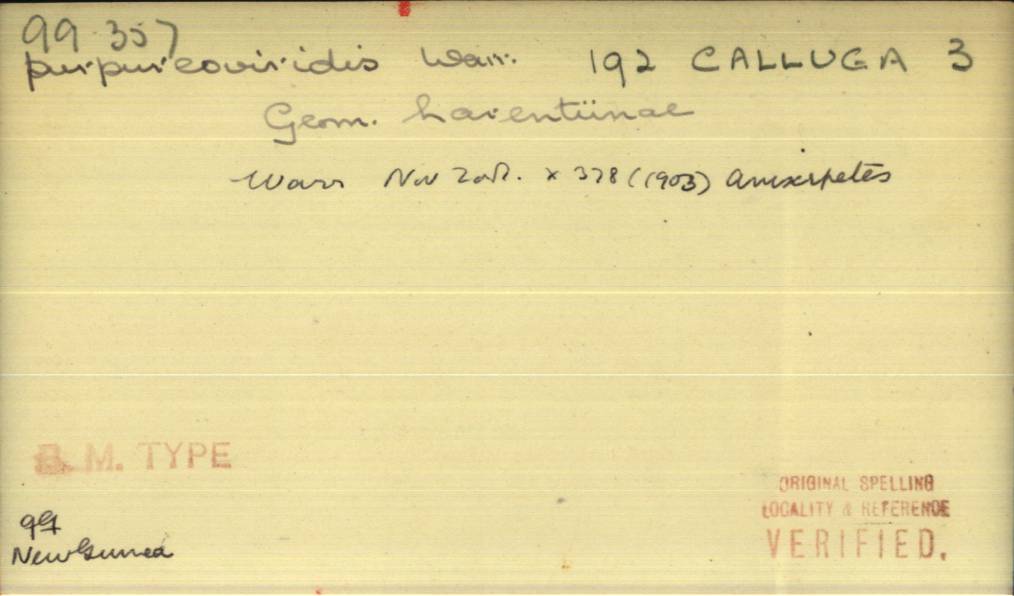 99 357
purpureoviridis Warr. 192 CALLUGA 3
Geom. Larentiinae
Warr Nov Zool. x 378 (1903) Anixerpetes
B. M. TYPE
ORIGINAL SPELLING
LOCALITY & REFERENCE
VERIFIED.
New Guinea